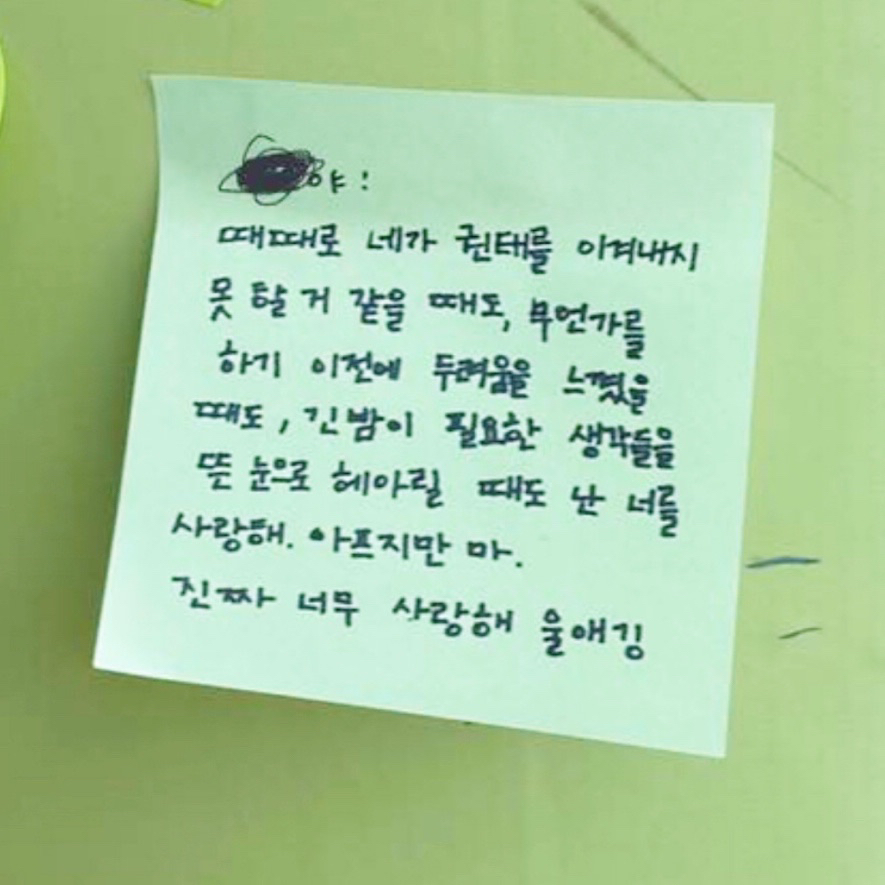 야!
때때로 네가 권태를 이겨내지
못 할 거 같을 때도, 무언가를
하기 이전에 두려움을 느꼈을
때도, 긴밤이 필요한 생각들을
뜬 눈으로 헤아릴 때도 난 너를
사랑해. 아프지만 마.
진짜 너무 사랑해 울애깅